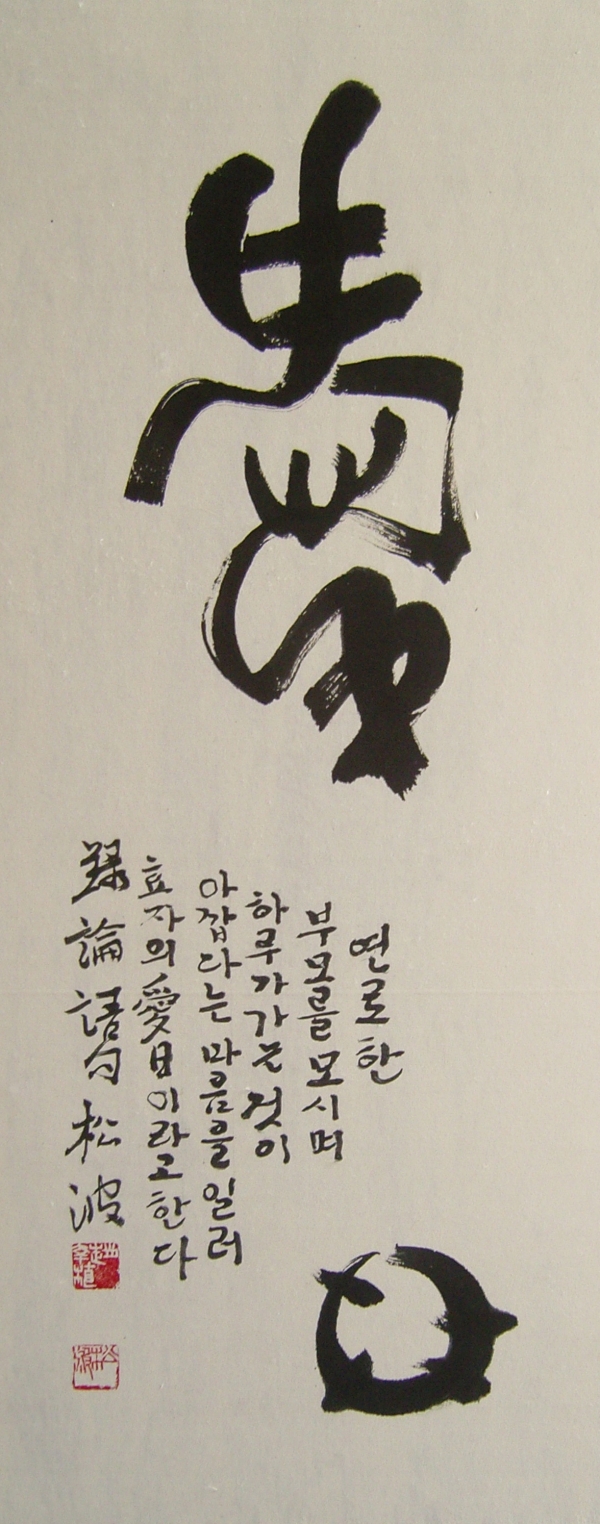 愛
日
연로한
부모를 모시며
하루가 가는 것이
아깝다는 마음을 일러
효자의 愛日이라고 한다
錄論語句 松波
松波